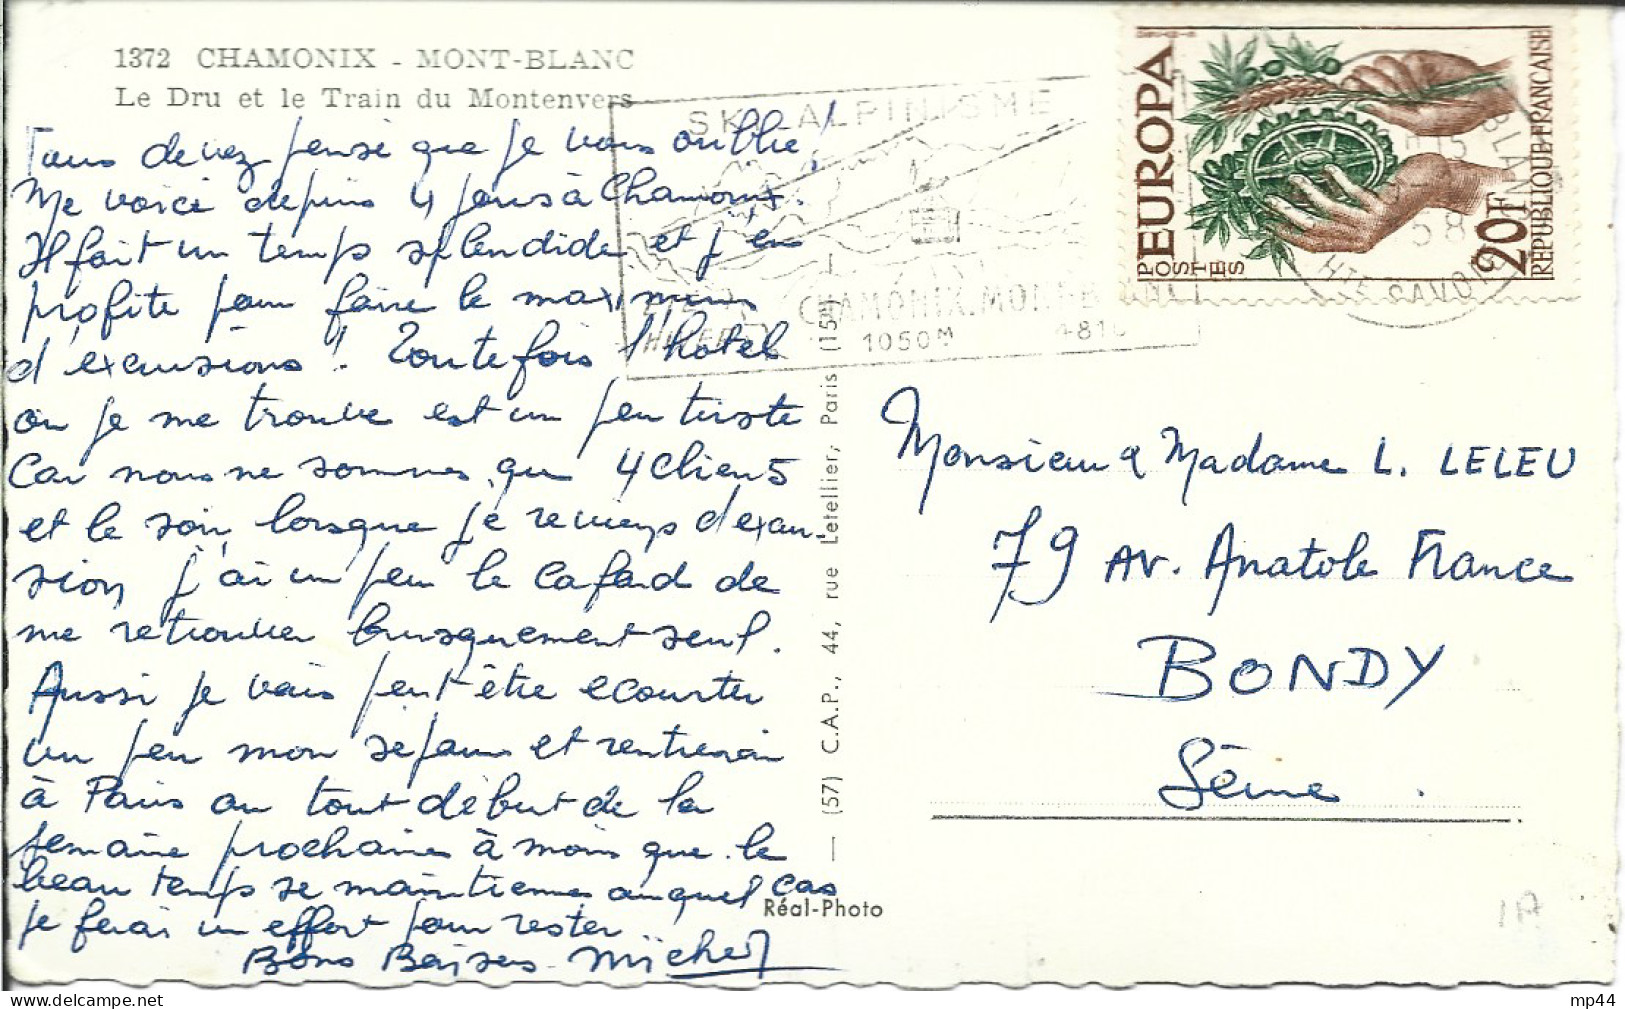 1372 CHAMONIX - MONT-BLANC
Le Dru et le Train du Montenvers
Vous devez pensé que je vous oublie !
Me voici depuis 4 jours à Chamonix.
Il fait un temps splendide et j'en
profite pour faire le maximum
d'excursions ! Toutefois l'hotel
ou je me trouve est un peu triste
Car nous ne sommes que 4 clients
et le soir, lorsque je reviens d'excur-
sion j'ai un peu le cafard de
me retrouver brusquement seul.
Aussi je vais peut-être écourter
un peu mon séjour et rentrerai
à Paris au tout début de la
semaine prochaine à moins que le
beau temps se maintienne auquel cas
je ferai un effort pour rester
Bons Baisers Michel
SKI ALPINISME
ÉTÉ
HIVER
CHAMONIX.MONT-BLANC
1050M 4810
EUROPA
POSTES
20F
RÉPUBLIQUE FRANÇAISE
BLANC
58
HTE SAVOIE
(57) C.A.P., 44, rue Letellier, Paris (15e)
Réal-Photo
Monsieur & Madame L. LELEU
79 Av. Anatole France
BONDY
Seine.
1A
mp44